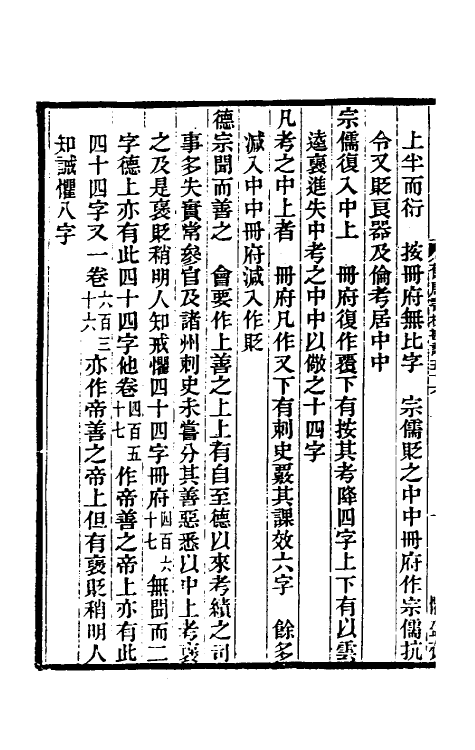 上半而衍　按冊府無比字　宗儒貶之中中冊府作宗儒抗
令又貶良器及倫考居中中
宗儒復入中上　冊府復作覆下有按其考降四字上下有以雲
逵襃進失中考之中中以儆之十四字
凡考之中上者　冊府凡作又下有刺史覈其課效六字　餘多
減入中中冊府減入作貶
德宗聞而善之　會要作上善之上上有自至德以來考績之司
事多失實常參官及諸州刺史未嘗分其善惡悉以中上考襃
之及是襃貶稍明人知戒懼四十四字冊府四百六十七無聞而二
字德上亦有此四十四字他卷四百五十七作帝善之帝上亦有此
四十四字又一卷六百三十六亦作帝善之帝上但有襃貶稍明人
知誡懼八字